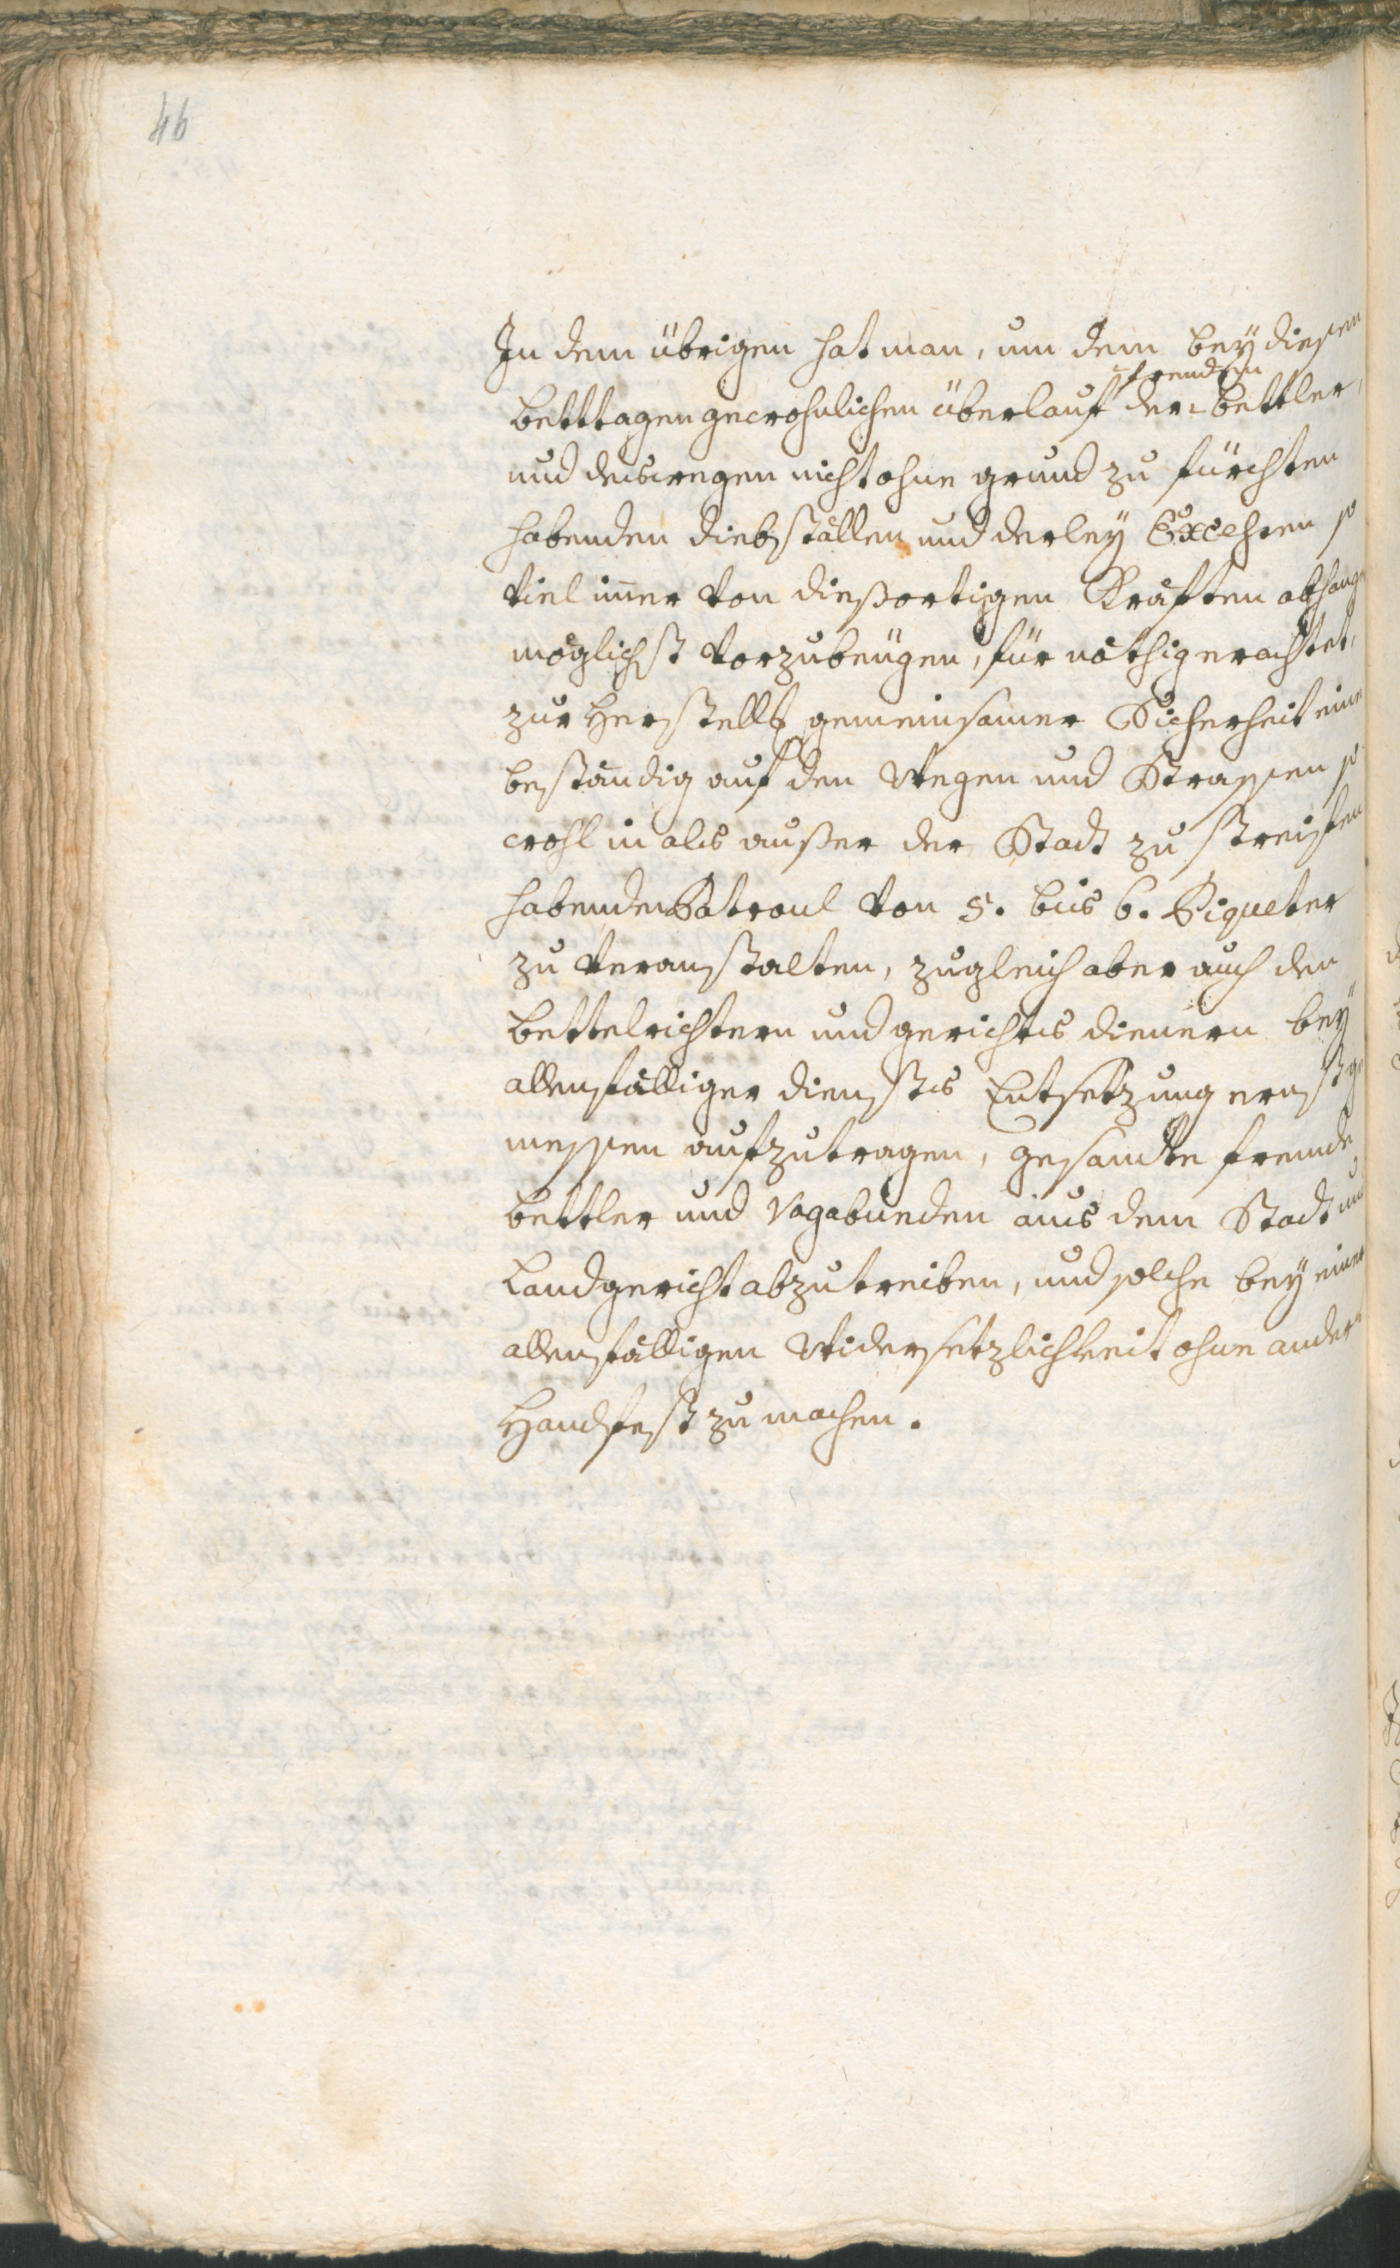 46
In dem übrigen hat man, um dem bey diesen
fremden
Betttagen gewohnlichen überlauf der Bettler,
und deswegen nicht ohne grund zu fürchten
habenden diebställen und derley Excessen so
viel im̄er von dießortigen Kräften abhang
möglichst vorzubeügen, für nöthig erachtet,
zur Herstellg gemeinsamer Sicherheit eine
beständig auf den Weegen und Strassen so
wohl in als außer der Stadt zu streifen
habende Patroul von 5. bis 6. Piqueter
zu veranstalten, zugleich aber auch den
Bettelrichtern und gerichts dienern bey
allenfälliger diensts Entsetzung ernstge
messen aufzutragen, gesamte fremde
Bettler und Vagabunden aus dem Stadt und
Landgericht abzutreiben, und solche bey einer
allenfälligen Widersetzlichkeit ohne ander
Handfest zu machen.